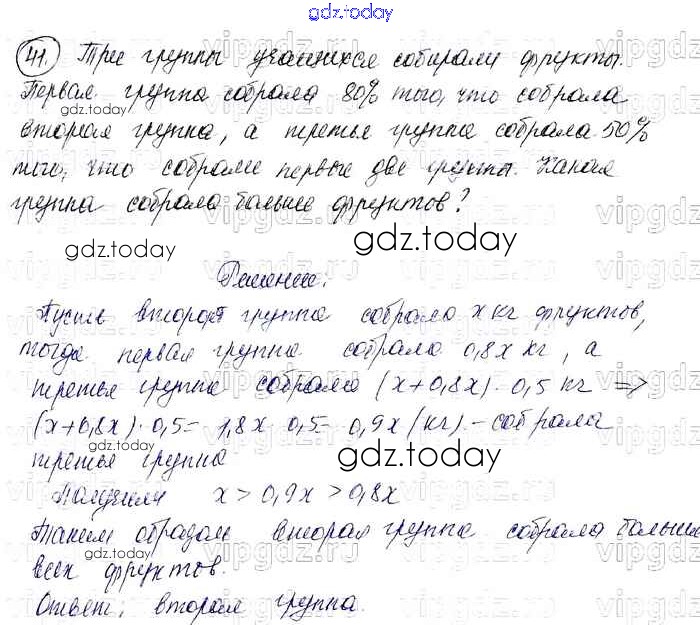 gdz.today
41. Три группы учащихся собирали фрукты.
Первая группа собрала 80% того, что собрала
вторая группа, а третья группа собрала 50%
того, что собрали первые две группы. Какая
группа собрала больше фруктов?
gdz.today
gdz.today
Решение:
Пусть вторая группа собрала x кг фруктов,
тогда первая группа собрала 0,8x кг, а
gdz.today
третья группа собрала (x+0,8x)·0,5 кг =>
(x+0,8x)·0,5= 1,8x·0,5= 0,9x (кг) - собрала
gdz.today
третья группа
gdz.today
Получили x > 0,9x > 0,8x
Таким образом вторая группа собрала больше
gdz.today
всех фруктов.
Ответ: вторая группа.
gdz.today